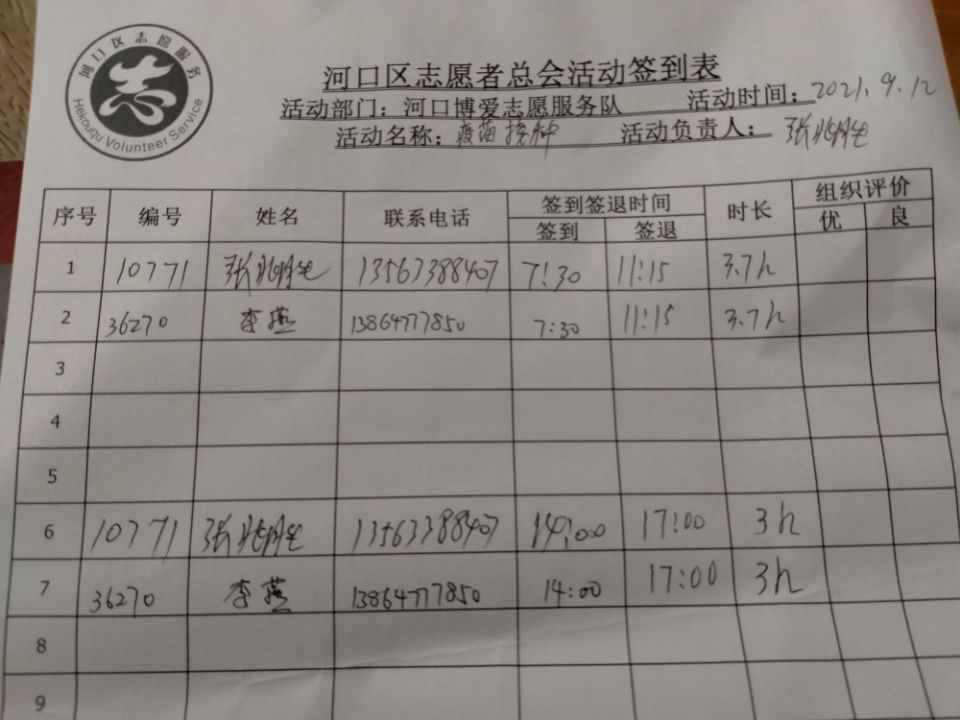 河口区志愿服务
Hekouqu Volunteer Service
河口区志愿者总会活动签到表
活动部门：河口博爱志愿服务队 活动时间：2021.9.12
活动名称：疫苗接种 活动负责人：张兆胜
序号 编号 姓名 联系电话 签到签退时间 时长 组织评价
签到 签退 优 良
1 10771 张兆胜 13563388407 7:30 11:15 3.7h
2 36270 李燕 13864777850 7:30 11:15 3.7h
3
4
5
6 10771 张兆胜 13563388407 14:00 17:00 3h
7 36270 李燕 13864777850 14:00 17:00 3h
8
9